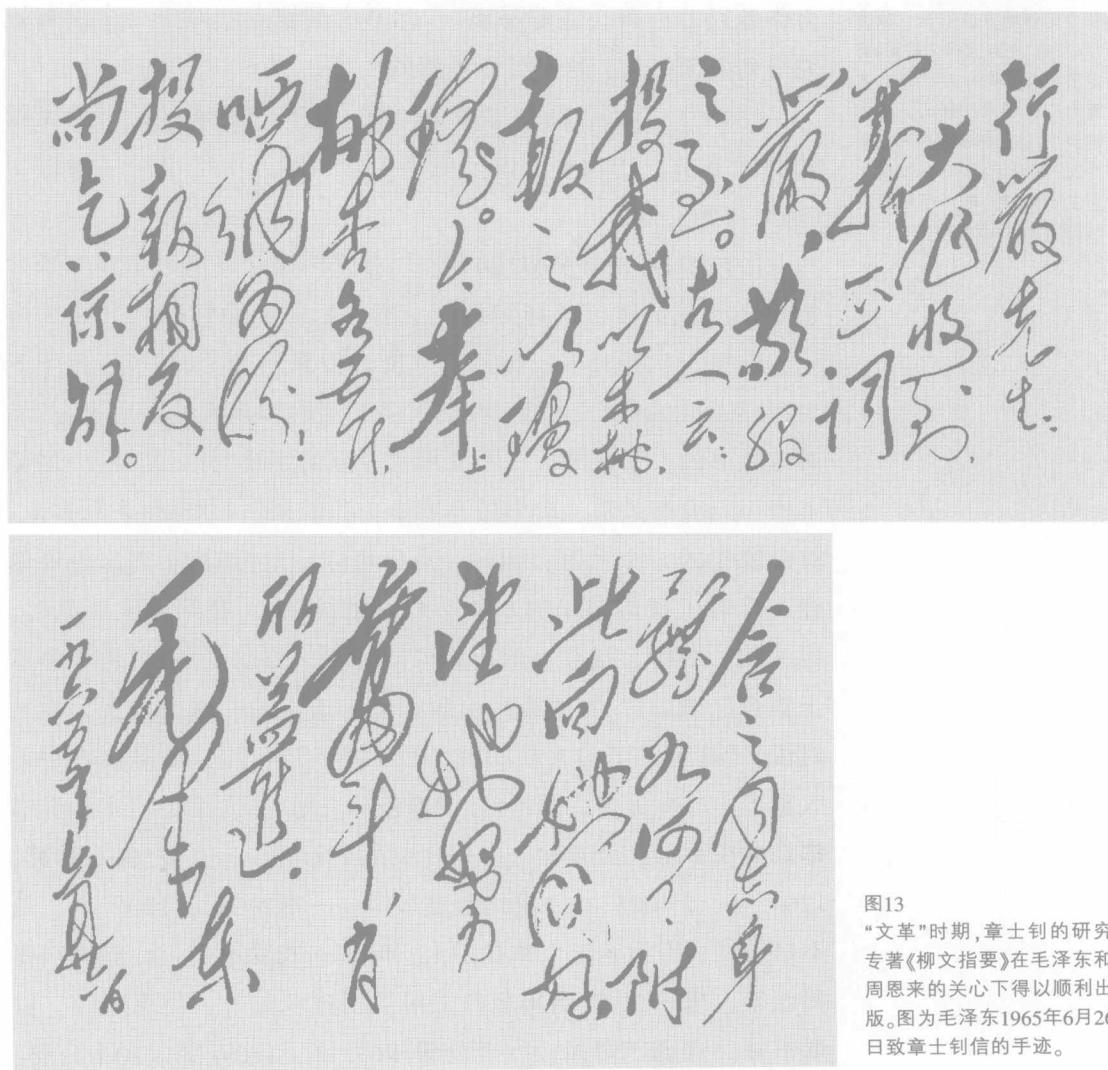 行嚴先生：
大作收到，
義正词
嚴，敬服
之至。古人云：
投我以木桃，
報之以瓊
瑤。今奉上
桃杏各五斤，
哂纳为盼！
投報相反，
尚乞谅解。
含之同志身
體如何？附
此向她问好，
望她努力
奮斗，有
所益進。
毛泽东
一九六五年六月廿六日
图13
“文革”时期，章士钊的研究
专著《柳文指要》在毛泽东和
周恩来的关心下得以顺利出
版。图为毛泽东1965年6月26
日致章士钊信的手迹。